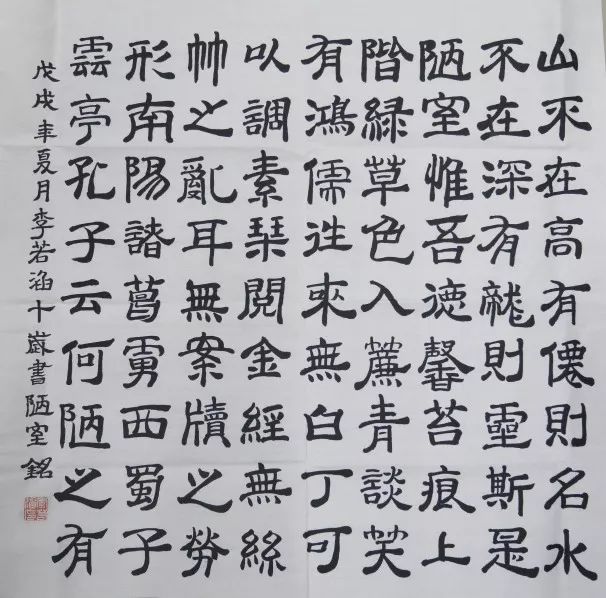 山不在高有僊則名水
不在深有龍則靈斯是
陋室惟吾徳馨苔痕上
階緑草色入簾青談笑
有鴻儒往來無白丁可
以調素琴閲金經無絲
竹之亂耳無案牘之勞
形南陽諸葛廬西蜀子
雲亭孔子云何陋之有
戊戌年夏月李若涵十歲書陋室銘